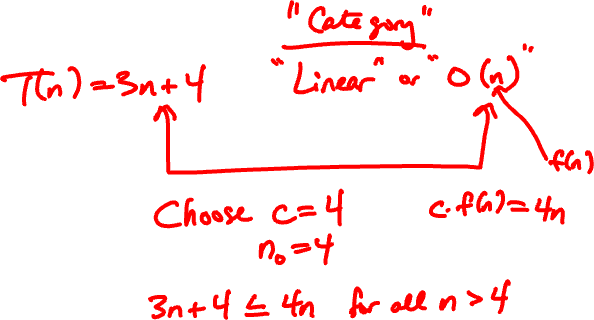 "Category"
T(n) = 3n+4 "Linear" or "O(n)"
f(n)
Choose c=4 c·f(n)=4n
n₀=4
3n+4 ≤ 4n for all n>4